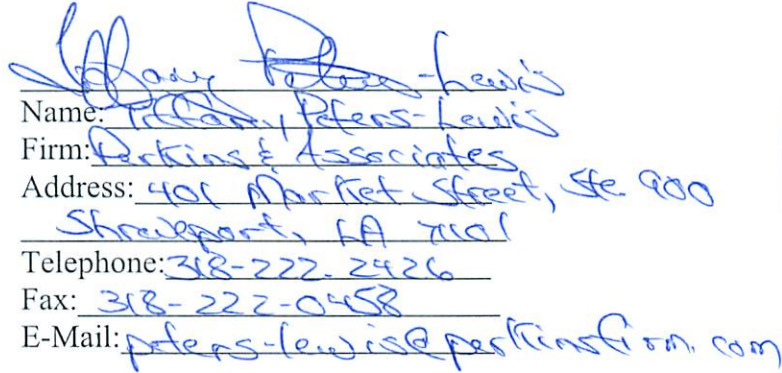 Tiffany Peters-Lewis
Name: Tiffany Peters-Lewis
Firm: Perkins & Associates
Address: 401 Market Street, Ste 900
Shreveport, LA 71101
Telephone: 318-222-2426
Fax: 318-222-0458
E-Mail: peters-lewis@perkinsfirm.com